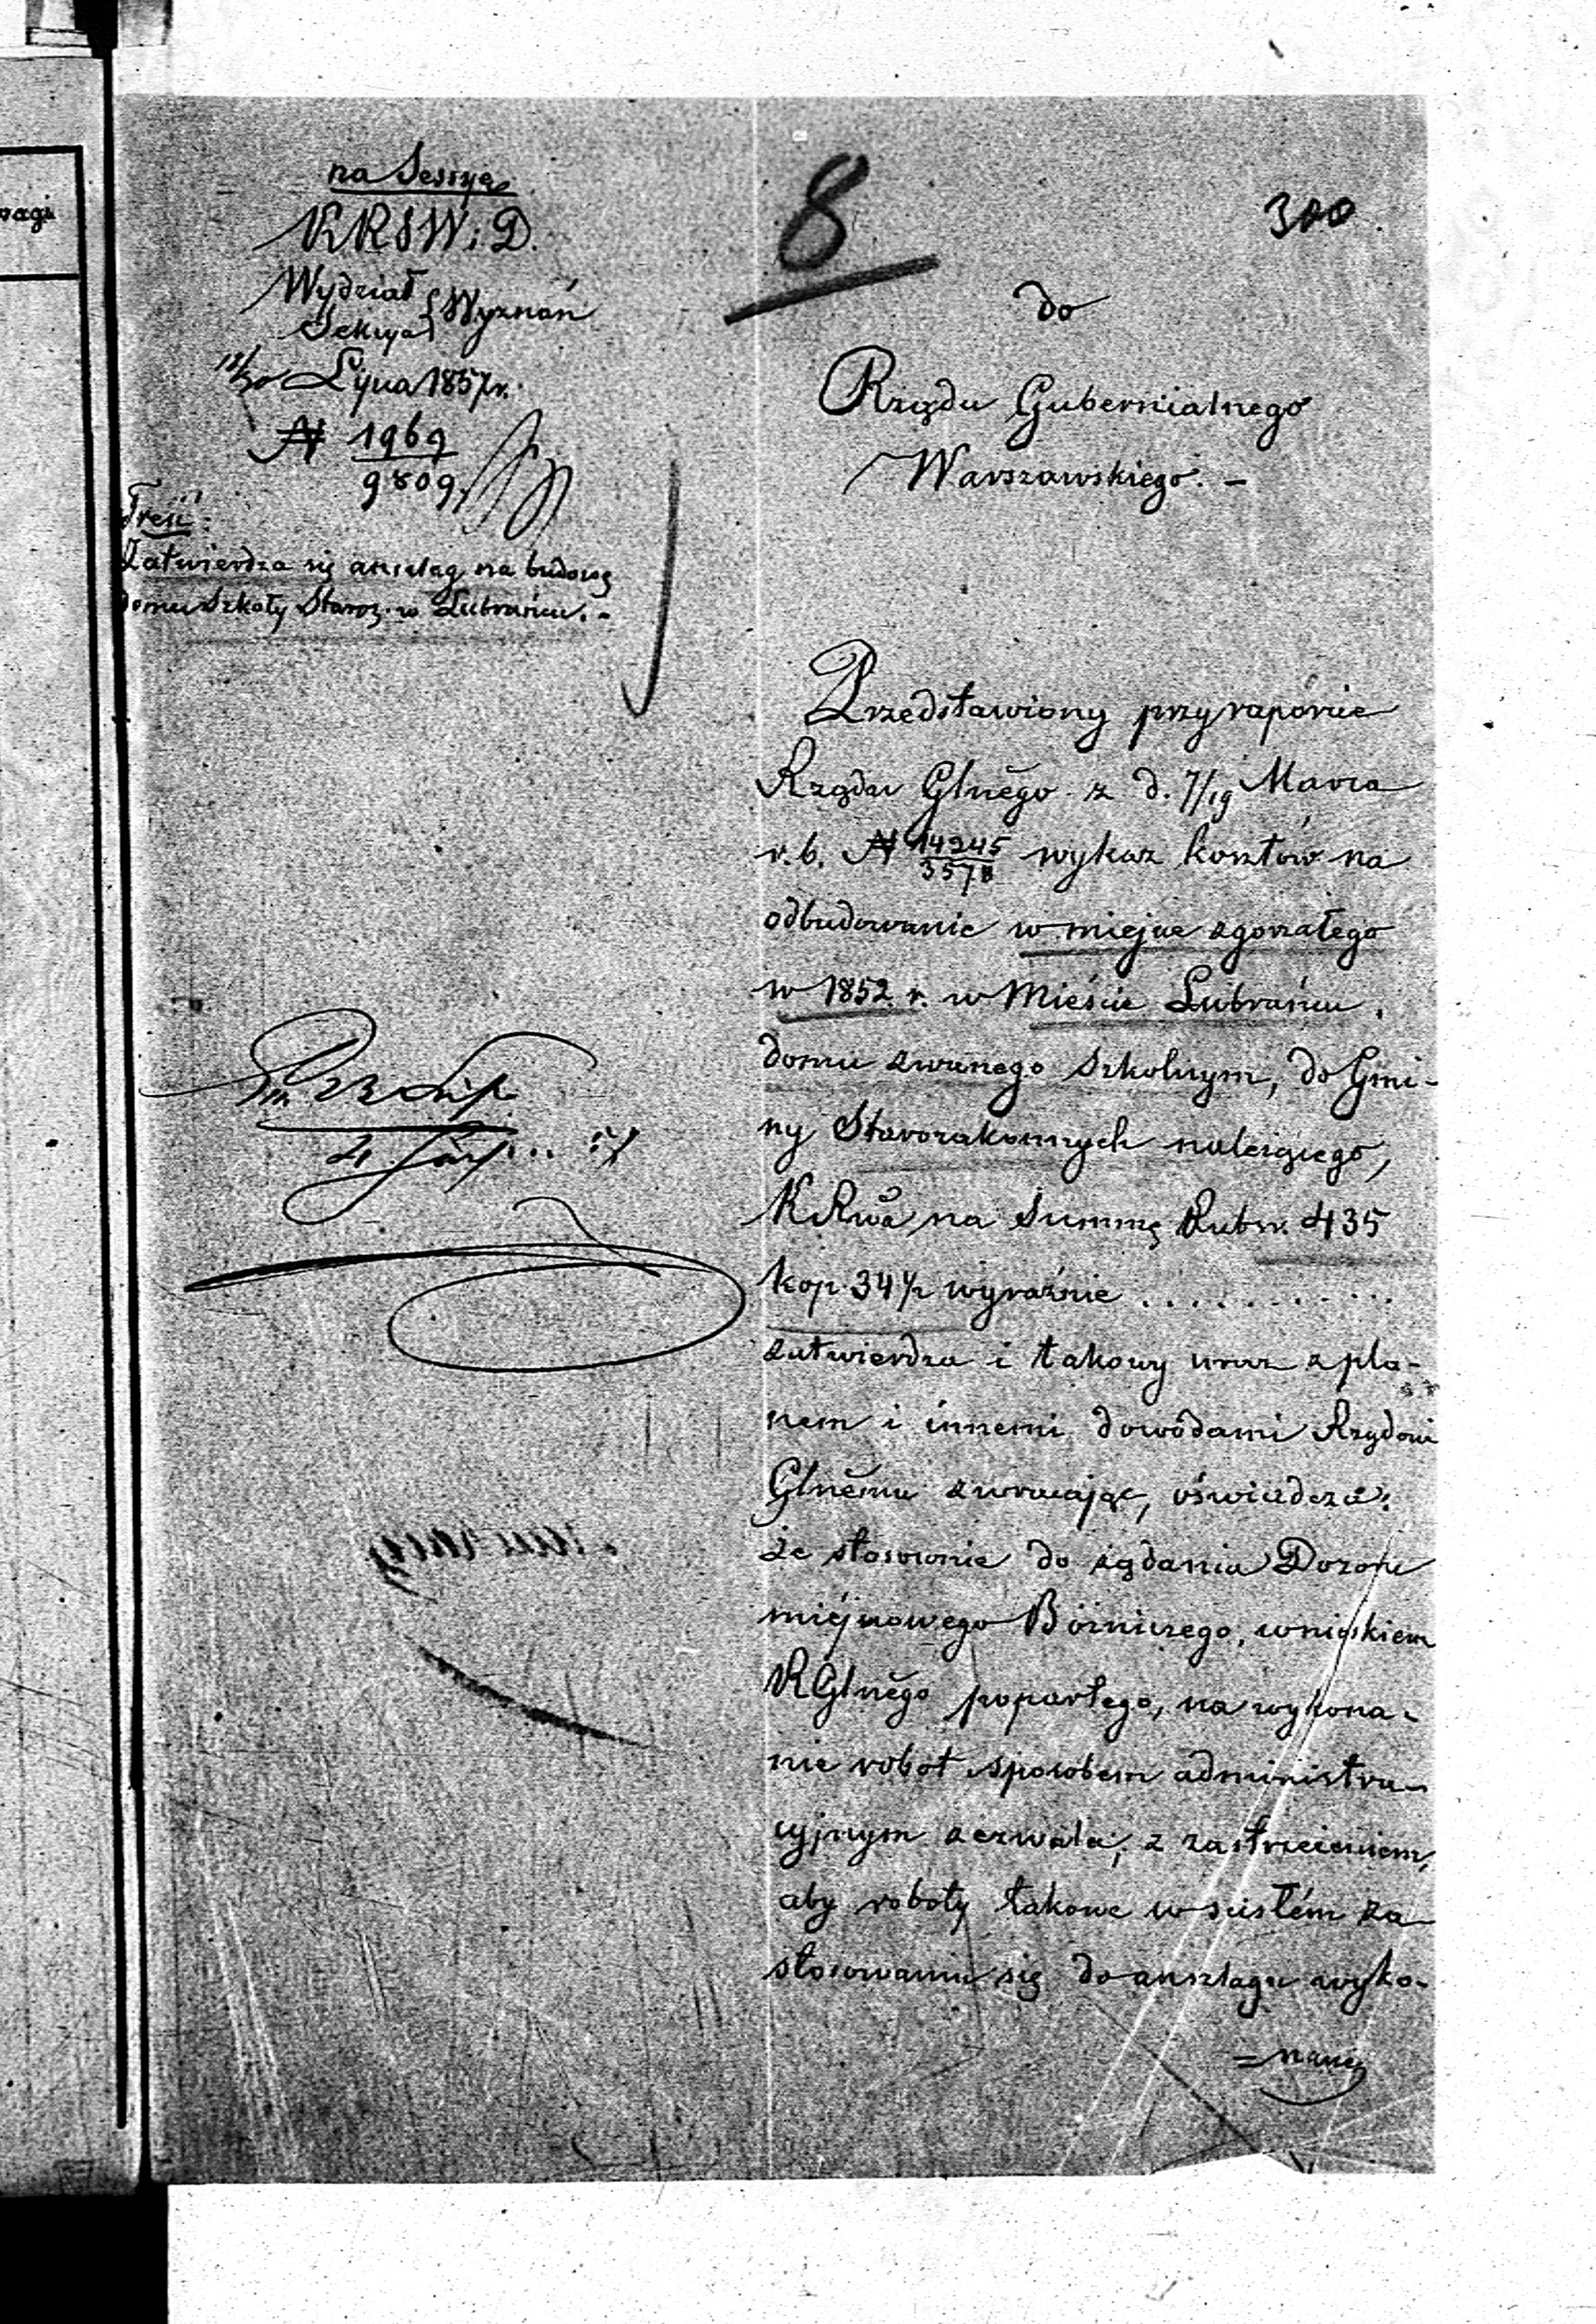 na Sessyę
KRSW i D.
Wydział
Sekcya } Wyznań
18/30 Lipca 1857 r.
N 1969
9809
Treść:
Zatwierdza się anszlag na budowę
domu Szkoły Staroz. w Lubrańcu. -
8
300
do
Rządu Gubernialnego
Warszawskiego. -
Przedstawiony przy raporcie
Rządu Glnego z d. 7/19 Marca
r. b. N 14245
3578 wykaz kosztów na
odbudowanie w miejsce zgorzałego
w 1852 r. w Mieście Lubrańcu,
domu zwanego Szkolnym, do Gmi-
ny Starozakonnych należącego,
KRwa na Summę Rubsr. 435
kop. 34 1/2 wyraźnie . . . . . . . . . . .
zatwierdza i takowy wraz z pla-
nem i innemi dowodami Rządowi
Glnemu zwracając, oświadcza:
że stosownie do żądania Dozoru
miejscowego Bóżniczego, wnioskiem
RGlnego popartego, na wykona-
nie robot sposobem administra-
cyjnym zezwala; z zastrzeżeniem,
aby roboty takowe w ścisłém za-
stosowaniu się do anszlagu wyko-
=nane